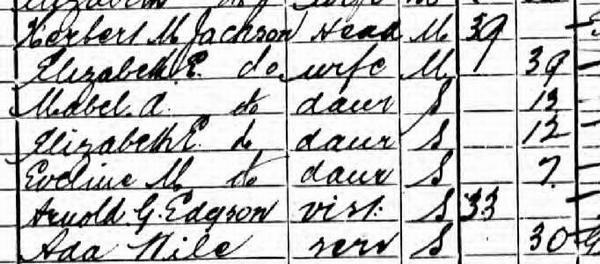 Herbert M. Jackson Head M 39
Elizabeth E. do wife M 39
Mabel A. do daur S 13
Elizabeth E. do daur S 12
Eveline M do daur S 7
Arnold G. Edgson visr. S 33
Ada Nile serv S 30